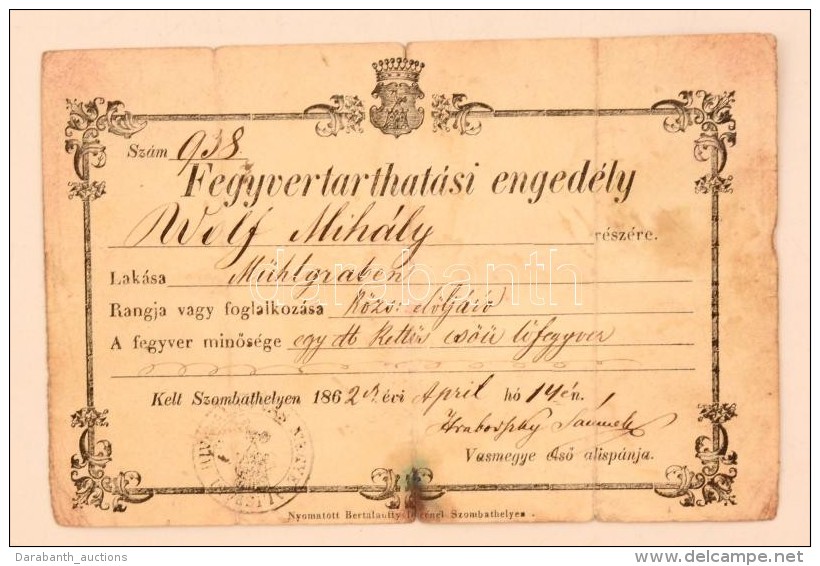 Szám 938.
Fegyvertarthatási engedély
Wolf Mihály részére.
Lakása Mühlgraben
darabanth
Rangja vagy foglalkozása Közs: elöljáró
A fegyver minősége egy db kettős csöű lőfegyver
Kelt Szombathelyen 1862 dk évi April hó 14én.
Hrabovszky Sámuel
Vasmegye első alispánja.
Nyomatott Bertalanffy Szombathelyen.
Darabanth_auctions
www.delcampe.net